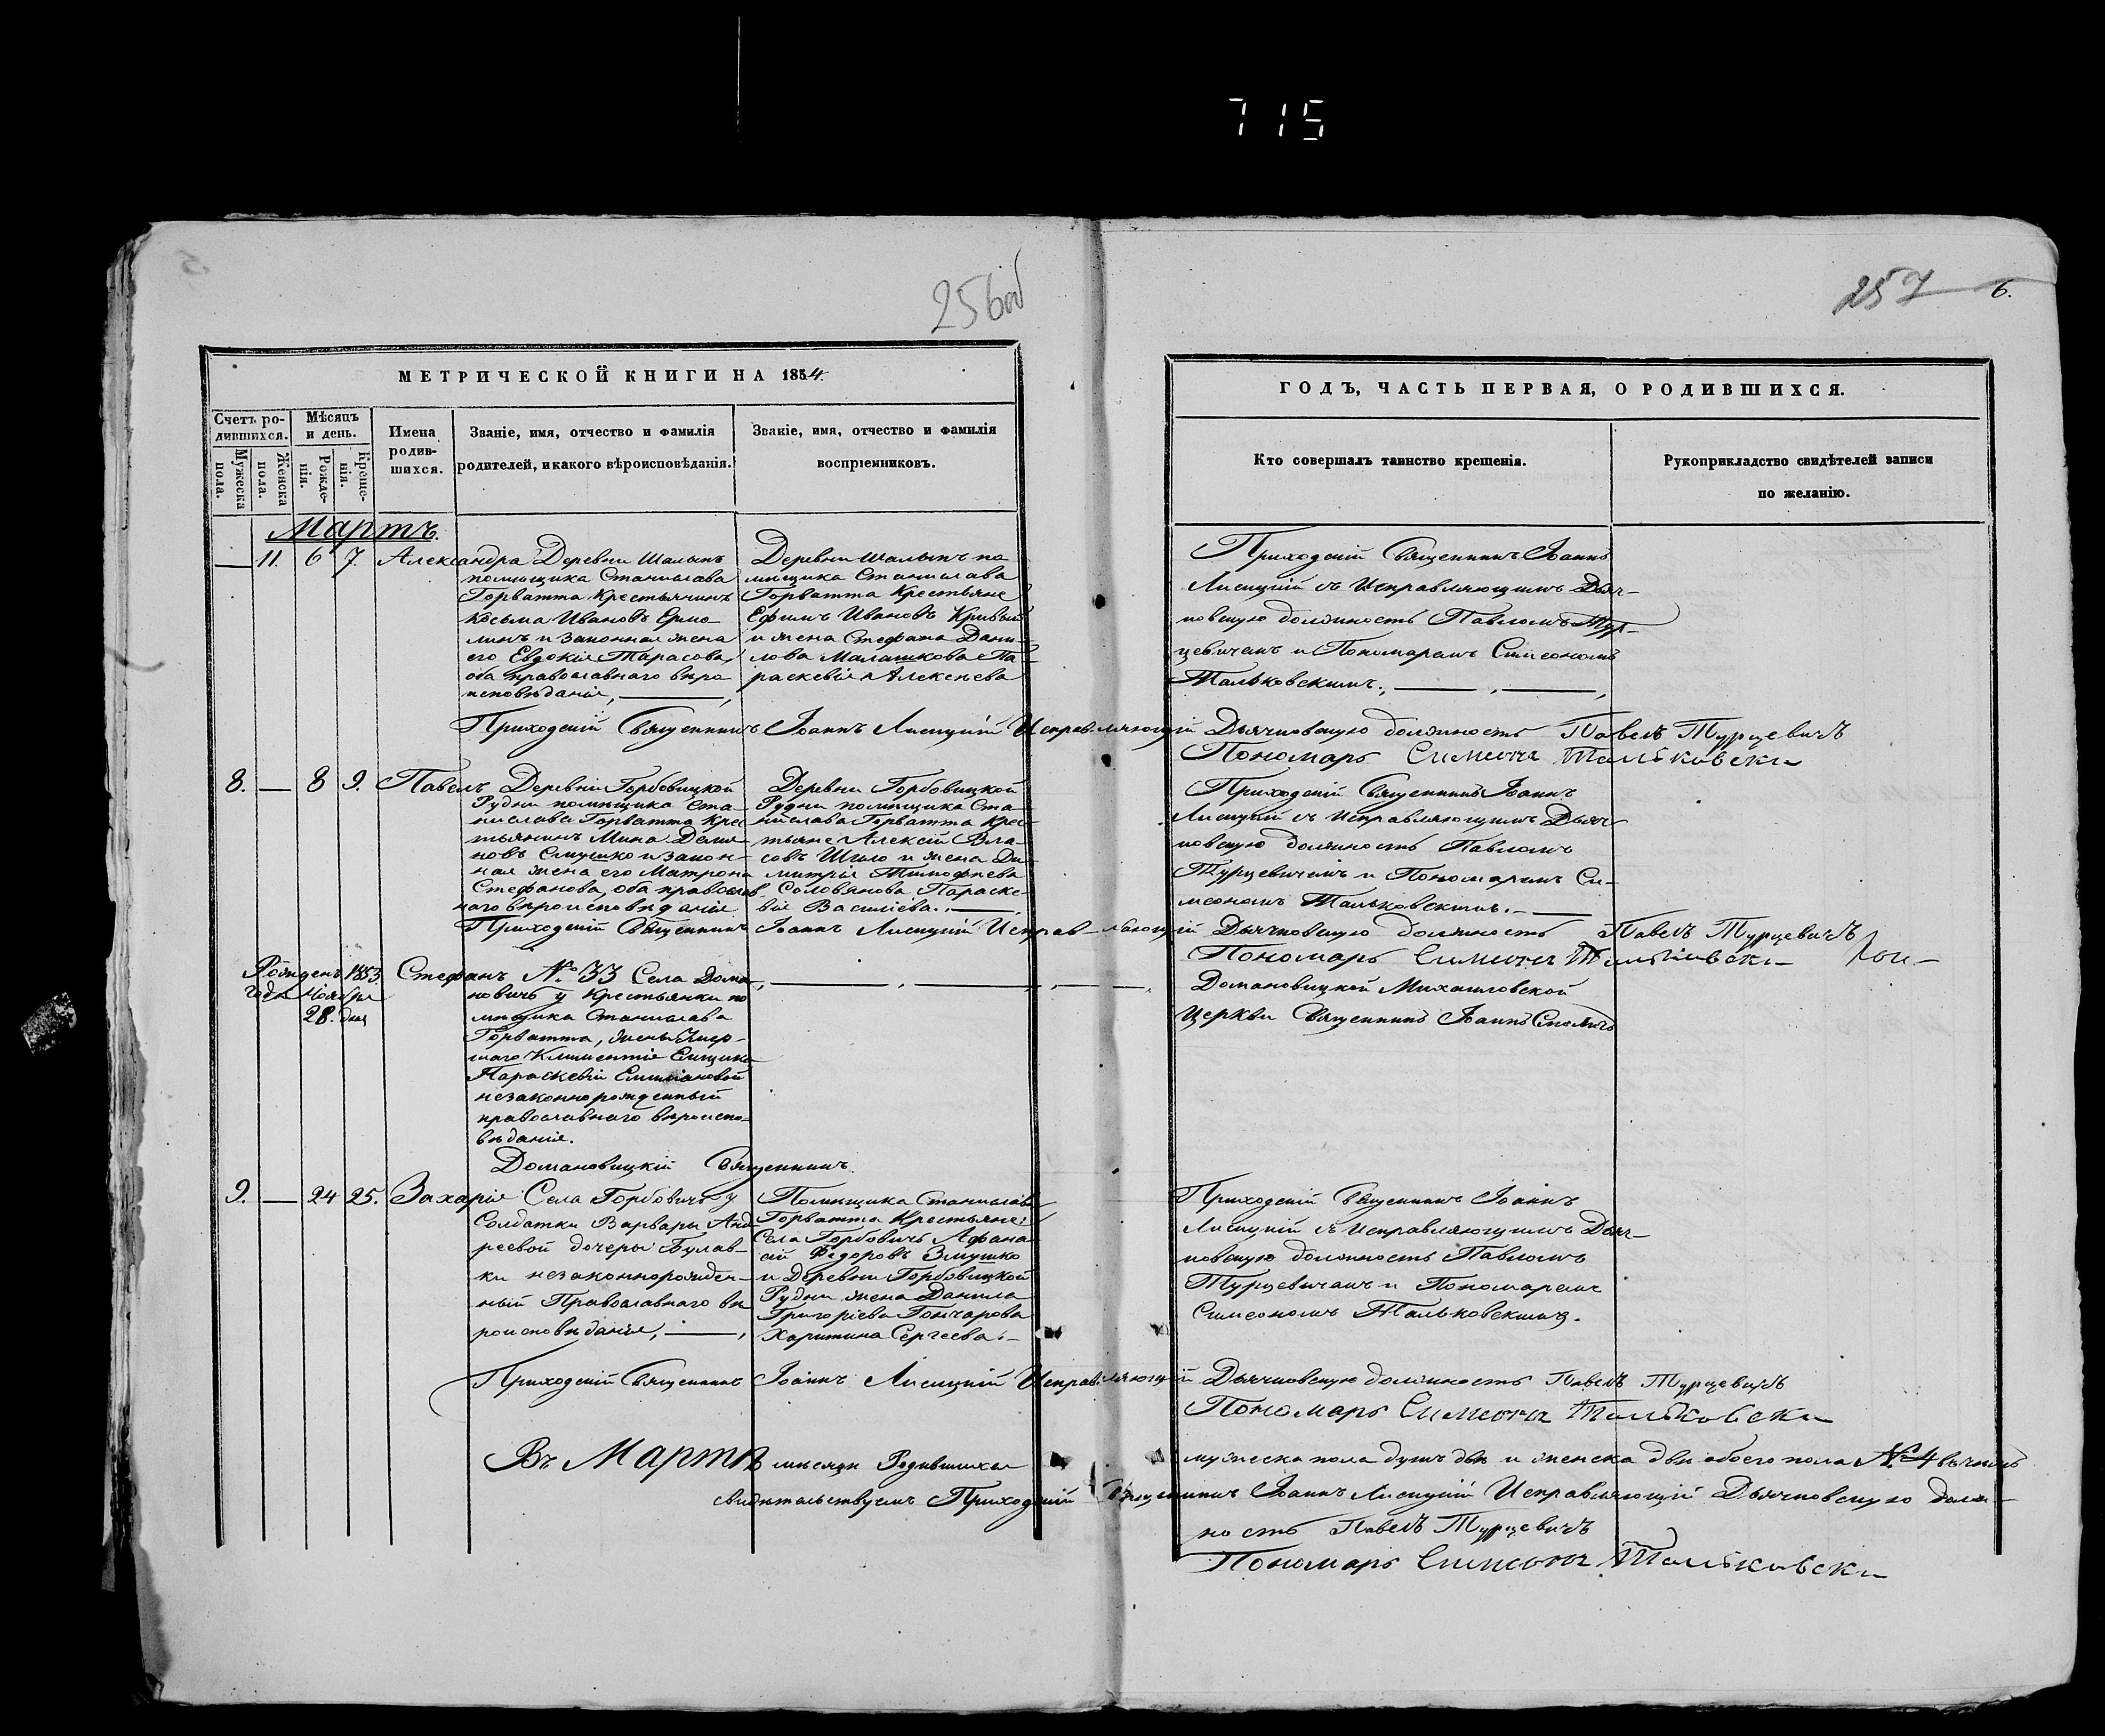 715
256об
257
6.
МЕТРИЧЕСКОЙ КНИГИ НА 1854.
Счетъ родившихся.
Мужеска пола.
Женска пола.
Мѣсяцъ и день.
Рожденія.
Крещенія.
Имена родившихся.
Званіе, имя, отчество и фамилія
родителей, и какого вѣроисповѣданія.
Званіе, имя, отчество и фамилія
воспріемниковъ.
ГОДЪ, ЧАСТЬ ПЕРВАЯ, О РОДИВШИХСЯ.
Кто совершалъ таинство крещенія.
Рукоприкладство свидѣтелей записи
по желанію.
Мартъ
11. 6 7. Александра
Деревни Шалынъ
помѣщика Станислава
Горватта Крестьянинъ
Косьма Ивановъ Ермо
линъ и законная жена
его Евдокія Тарасова,
оба православнаго вѣро
исповѣданія,
Деревни Шалынъ по
мѣщика Станислава
Горватта Крестьяне
Ефимъ Ивановъ Кривый
и жена Стефана Дани-
лова Малашкова Па-
раскевія Алексѣева
Приходскій Священникъ Іоаннъ
Лисицкій съ Исправляющимъ Дьяч-
ковскую должность Павломъ Тур-
цевичемъ и Пономаремъ Симеономъ
Тальковскимъ.,
Приходскій Священникъ Іоаннъ Лисицкій Исправляющій Дьячковскую должность Павелъ Турцевичъ
Пономарь Симеонъ Тальковски
8. — 8 9. Павелъ
Деревни Горбовицкой
Рудни помѣщика Ста-
нислава Горватта Крес
тьянинъ Мина Демья-
новъ Смушко и закон-
ная жена его Матрона
Стефанова, оба православ-
наго вѣроисповѣданія
Деревни Горбовицкой
Рудни помѣщика Ста-
нислава Горватта Крес-
тьяне Алексій Вла-
совъ Шило и жена Ди-
митрія Тимофѣева
Соловьянова Параске-
вія Василіева.
Приходскій Священникъ Іоаннъ
Лисицкій съ Исправляющимъ Дьяч-
ковскую должность Павломъ
Турцевичемъ и Пономаремъ Си-
меономъ Тальковскимъ.
Приходскій Священникъ Іоаннъ Лисицкій Исправляющій Дьячковскую должность Павелъ Турцевичъ
Пономарь Симеонъ Тальковски
Рожденъ 1853
года Ноября
28. дня
Стефанъ
№ 33 Села Дома-
новичъ у Крестьянки по
мѣщика Станислава
Горватта, жены умер-
шаго Климентія
Параскевіи Емиліановой
незаконнорожденный
православнаго вѣроиспо-
вѣданія.
Домановицкой Михаиловской
Церкви Священникъ Іоаннъ
Домановицкій Священникъ
9. — 24 25. Захарія
Села Горбовичъ у
Солдатки Варвары Анд-
реевой дочеры Булав-
ки незаконнорожден-
ный Православнаго вѣ
роисповѣданія,
Помѣщика Станислава
Горватта Крестьяне:
Села Горбовичъ Афана-
сій Федоровъ Змушко
и Деревни Горбовицкой
Рудни жена Данила
Григоріева Гончарова
Харитина Сергеева.
Приходскій Священникъ Іоаннъ
Лисицкій съ Исправляющимъ Дьяч-
ковскую должность Павломъ
Турцевичемъ и Пономаремъ
Симеономъ Тальковскимъ.
Приходскій Священникъ Іоаннъ Лисицкій Исправляющій Дьячковскую должность Павелъ Турцевичъ
Пономарь Симеонъ Тальковски
Въ Мартѣ мѣсяцѣ Родившихся мужеска пола душъ двѣ и женска двѣ обоего пола № 4
свидѣтельствуемъ Приходскій Священникъ Іоаннъ Лисицкій Исправляющій Дьячковскую долж-
ность Павелъ Турцевичъ
Пономарь Симеонъ Тальковски